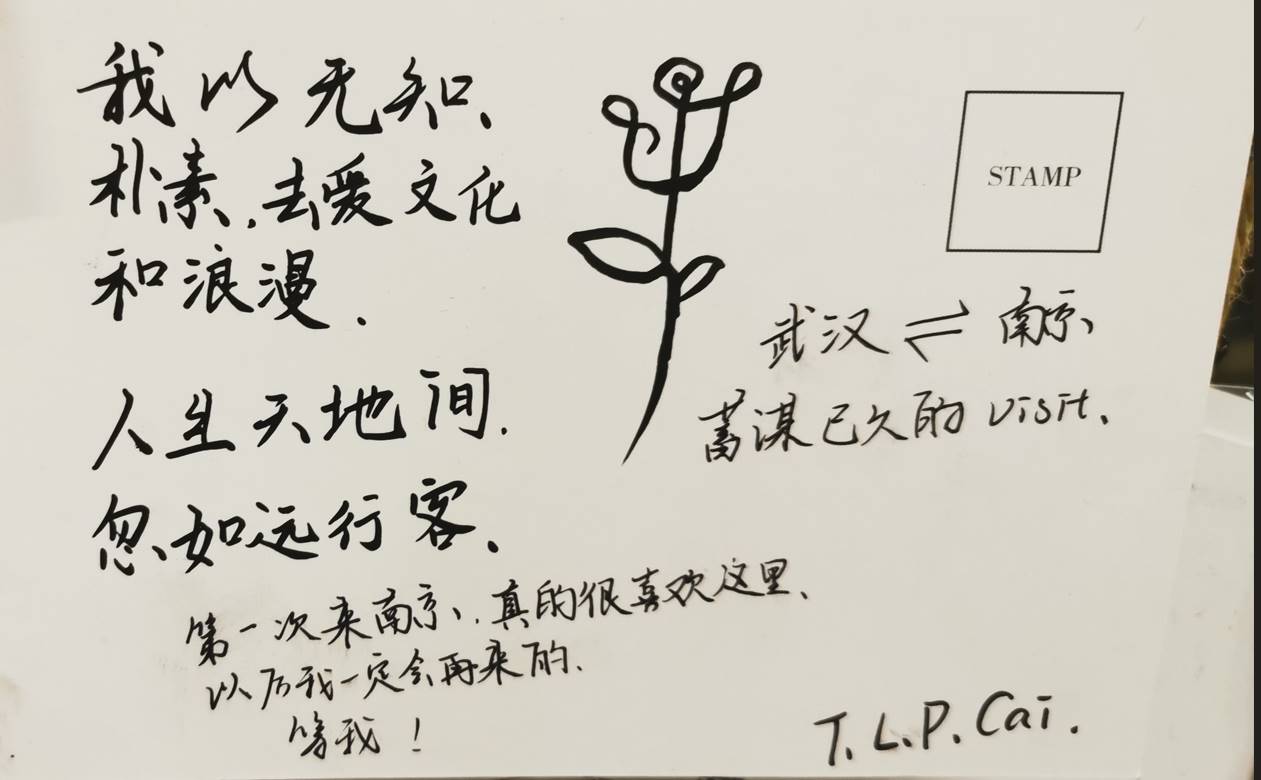 我以无知、
朴素,去爱文化
和浪漫.
人生天地间.
忽如远行客.
第一次来南京,真的很喜欢这里、
以后我一定会再来的.
等我!
STAMP
武汉⇌南京
蓄谋已久的 visit.
T.L.P.Cai.